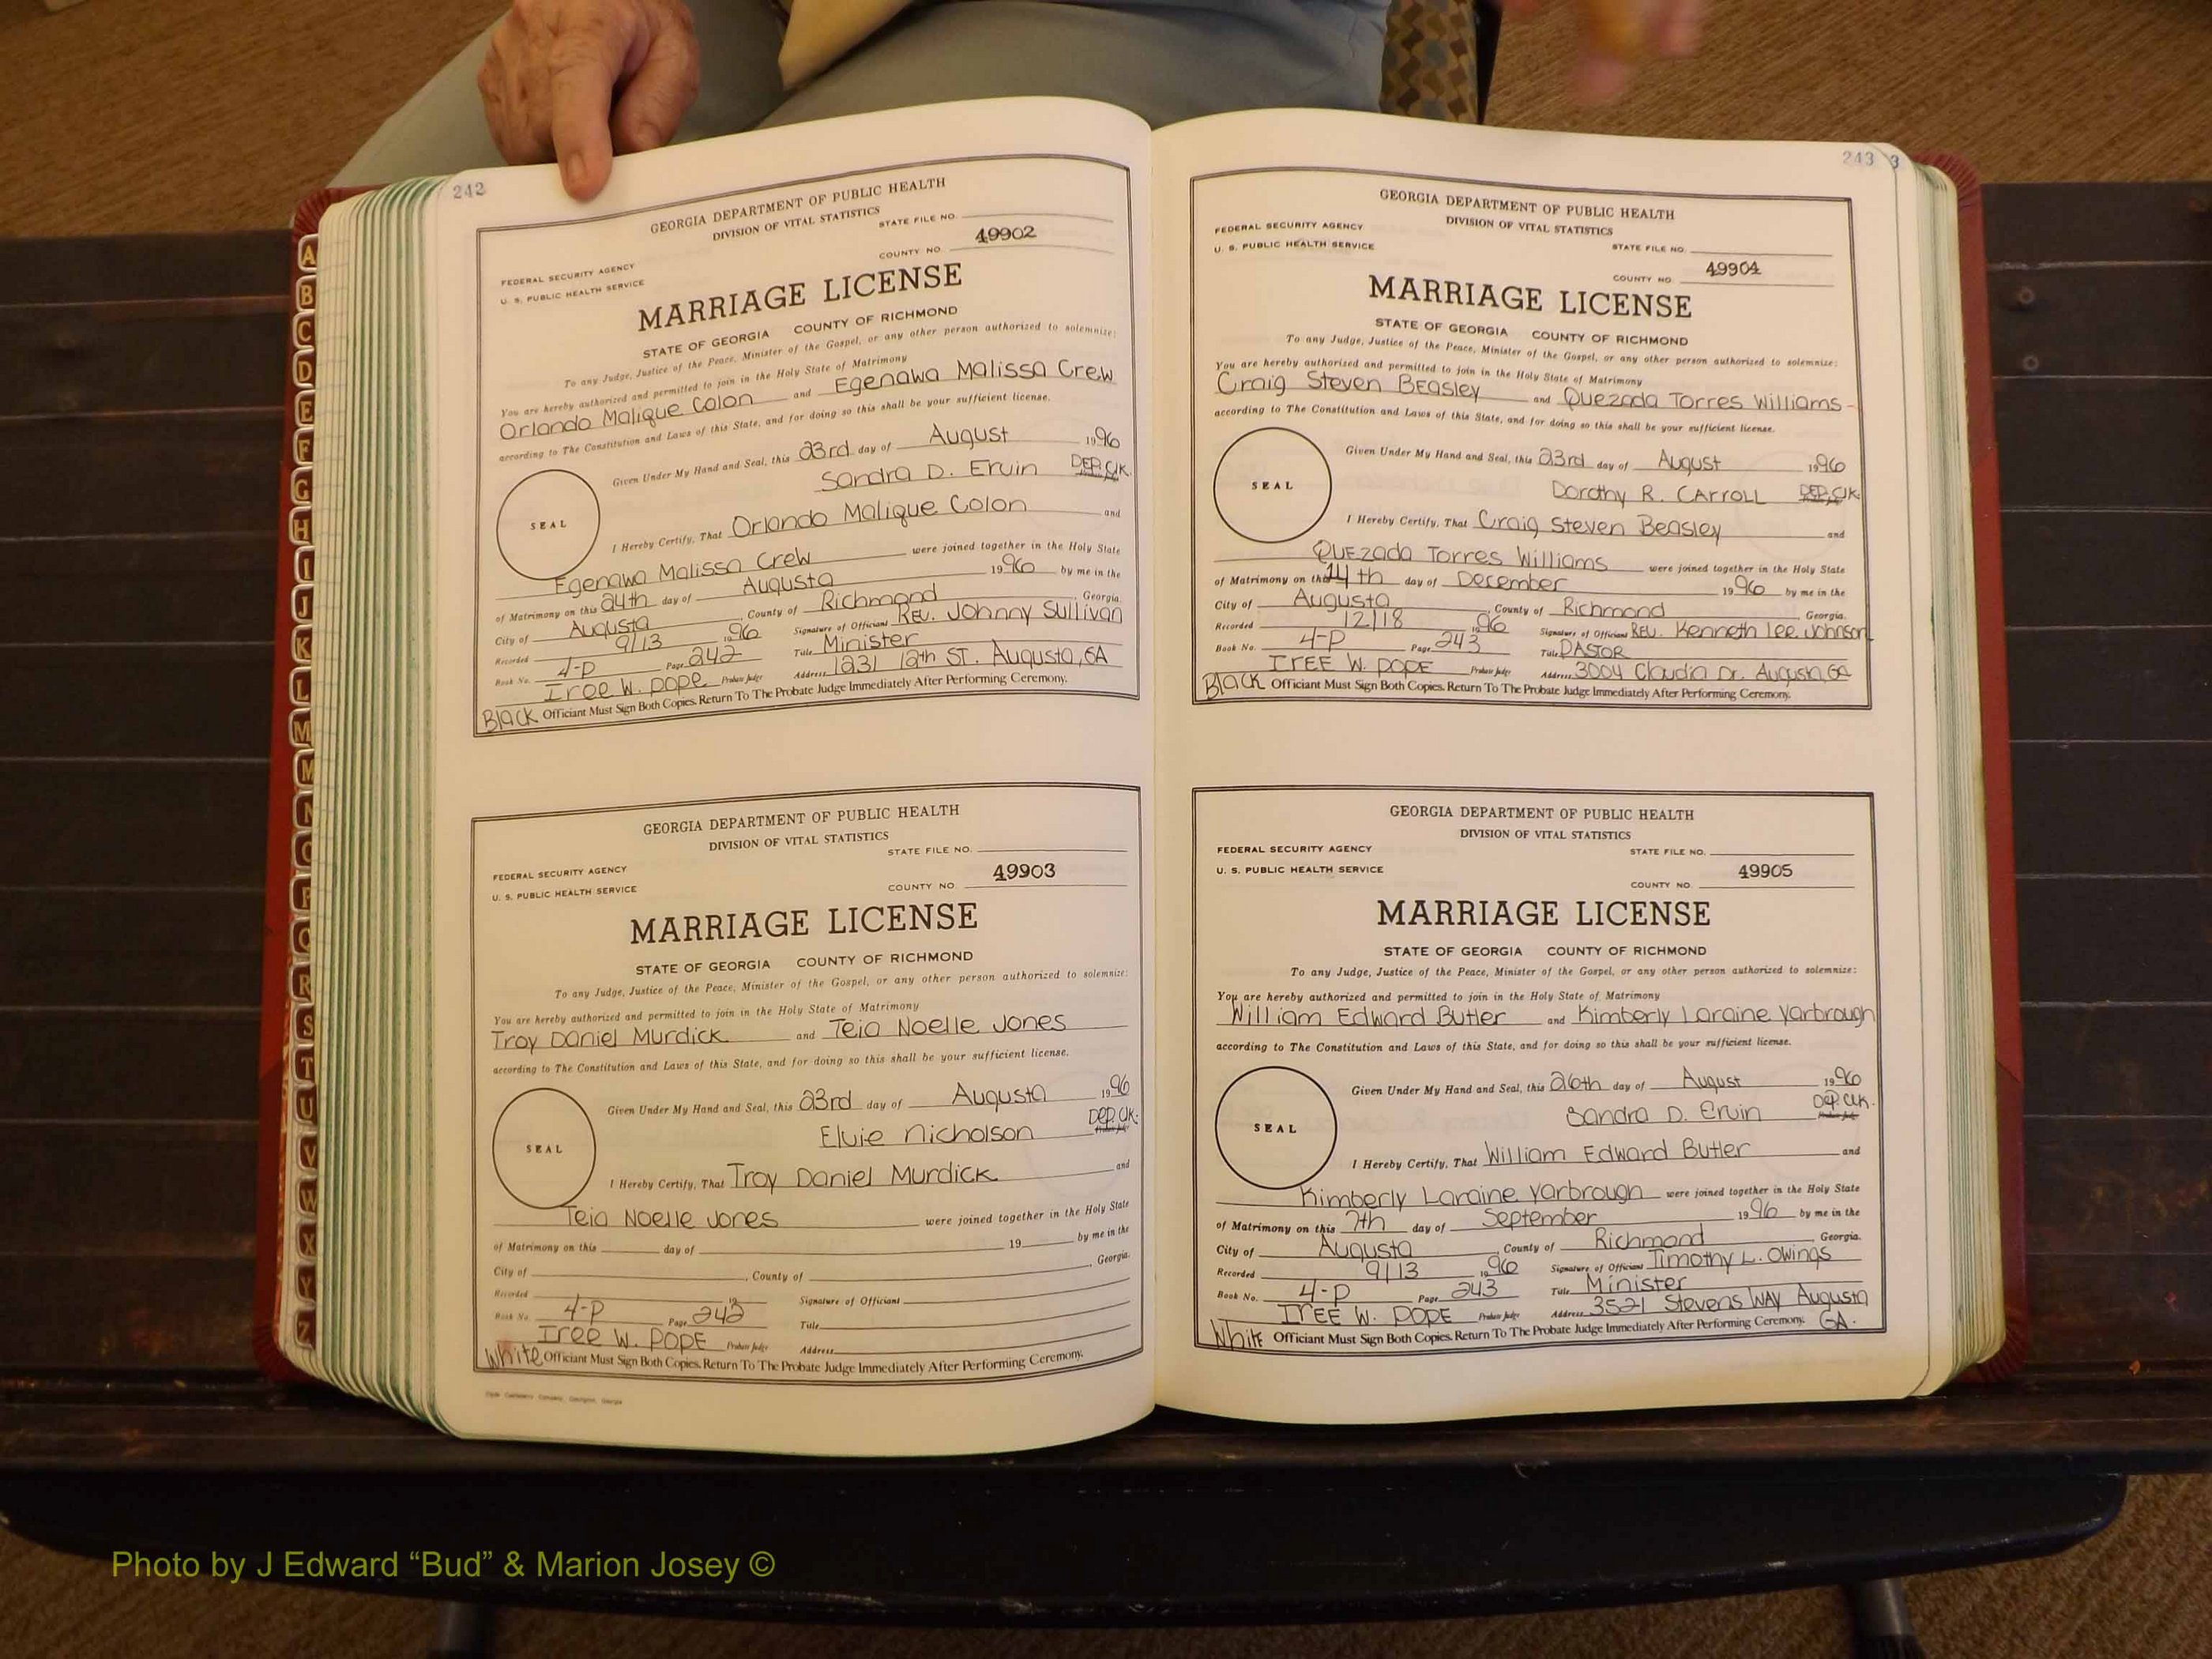 242
GEORGIA DEPARTMENT OF PUBLIC HEALTH
DIVISION OF VITAL STATISTICS
STATE FILE NO.
COUNTY NO. 49902
FEDERAL SECURITY AGENCY
U. S. PUBLIC HEALTH SERVICE
MARRIAGE LICENSE
STATE OF GEORGIA COUNTY OF RICHMOND
To any Judge, Justice of the Peace, Minister of the Gospel, or any other person authorized to solemnize:
You are hereby authorized and permitted to join in the Holy State of Matrimony
Orlando Malique Colon and Egenawa Malissa Crew
according to The Constitution and Laws of this State, and for doing so this shall be your sufficient license.
Given Under My Hand and Seal, this 23rd day of August 1996
Sandra D. Ervin DEP. CLK.
SEAL
I Hereby Certify, That Orlando Malique Colon and
Egenawa Malissa Crew were joined together in the Holy State
of Matrimony on this 24th day of Augusta 1996 by me in the
City of Augusta, County of Richmond, Georgia.
Recorded 9/13 1996 Signature of Official Rev. Johnny Sullivan
Book No. 4-P Page 242 Title Minister
Iree W. Pope Probate Judge Address 1231 12th ST. Augusta, GA
Black Officiant Must Sign Both Copies. Return To The Probate Judge Immediately After Performing Ceremony.
GEORGIA DEPARTMENT OF PUBLIC HEALTH
DIVISION OF VITAL STATISTICS
STATE FILE NO.
FEDERAL SECURITY AGENCY
U. S. PUBLIC HEALTH SERVICE
COUNTY NO. 49903
MARRIAGE LICENSE
STATE OF GEORGIA COUNTY OF RICHMOND
To any Judge, Justice of the Peace, Minister of the Gospel, or any other person authorized to solemnize:
You are hereby authorized and permitted to join in the Holy State of Matrimony
Troy Daniel Murdick and Teia Noelle Jones
according to The Constitution and Laws of this State, and for doing so this shall be your sufficient license.
Given Under My Hand and Seal, this 23rd day of Augusta 1996
Elvie Nicholson Dep. Clk.
SEAL
I Hereby Certify, That Troy Daniel Murdick and
Teia Noelle Jones were joined together in the Holy State
of Matrimony on this day of 19 by me in the
City of , County of , Georgia.
Recorded 19 Signature of Official
Book No. 4-P Page 242 Title
Iree W. Pope Probate Judge Address
White Officiant Must Sign Both Copies. Return To The Probate Judge Immediately After Performing Ceremony.
243 3
GEORGIA DEPARTMENT OF PUBLIC HEALTH
DIVISION OF VITAL STATISTICS
FEDERAL SECURITY AGENCY
U. S. PUBLIC HEALTH SERVICE
STATE FILE NO.
COUNTY NO. 49904
MARRIAGE LICENSE
STATE OF GEORGIA COUNTY OF RICHMOND
To any Judge, Justice of the Peace, Minister of the Gospel, or any other person authorized to solemnize:
You are hereby authorized and permitted to join in the Holy State of Matrimony
Craig Steven Beasley and Quezada Torres Williams
according to The Constitution and Laws of this State, and for doing so this shall be your sufficient license.
Given Under My Hand and Seal, this 23rd day of August 1996
Dorothy R. Carroll DEP. CLK.
SEAL
I Hereby Certify, That Craig Steven Beasley and
Quezada Torres Williams were joined together in the Holy State
of Matrimony on this 14th day of December 1996 by me in the
City of Augusta, County of Richmond, Georgia.
Recorded 12/18 1996 Signature of Official Rev. Kenneth Lee Johnson
Book No. 4-P Page 243 Title PASTOR
Iree W. Pope Probate Judge Address 3004 Claudia Dr. Augusta, GA
Black Officiant Must Sign Both Copies. Return To The Probate Judge Immediately After Performing Ceremony.
GEORGIA DEPARTMENT OF PUBLIC HEALTH
DIVISION OF VITAL STATISTICS
FEDERAL SECURITY AGENCY
STATE FILE NO.
U. S. PUBLIC HEALTH SERVICE
COUNTY NO. 49905
MARRIAGE LICENSE
STATE OF GEORGIA COUNTY OF RICHMOND
To any Judge, Justice of the Peace, Minister of the Gospel, or any other person authorized to solemnize:
You are hereby authorized and permitted to join in the Holy State of Matrimony
William Edward Butler and Kimberly Loraine Yarbrough
according to The Constitution and Laws of this State, and for doing so this shall be your sufficient license.
Given Under My Hand and Seal, this 26th day of August 1996
Sandra D. Ervin Dep. Clk.
SEAL
I Hereby Certify, That William Edward Butler and
Kimberly Loraine Yarbrough were joined together in the Holy State
of Matrimony on this 7th day of September 1996 by me in the
City of Augusta, County of Richmond, Georgia.
Recorded 9/13 1996 Signature of Official Timothy L. Owings
Book No. 4-P Page 243 Title Minister
Iree W. Pope Probate Judge Address 3521 Stevens Way Augusta
White Officiant Must Sign Both Copies. Return To The Probate Judge Immediately After Performing Ceremony. GA.
A
B
C
D
E
F
G
H
I
J
K
L
M
M
N
O
P
Q
R
S
T
U
V
W
X
Y
Z
Photo by J Edward “Bud” & Marion Josey ©